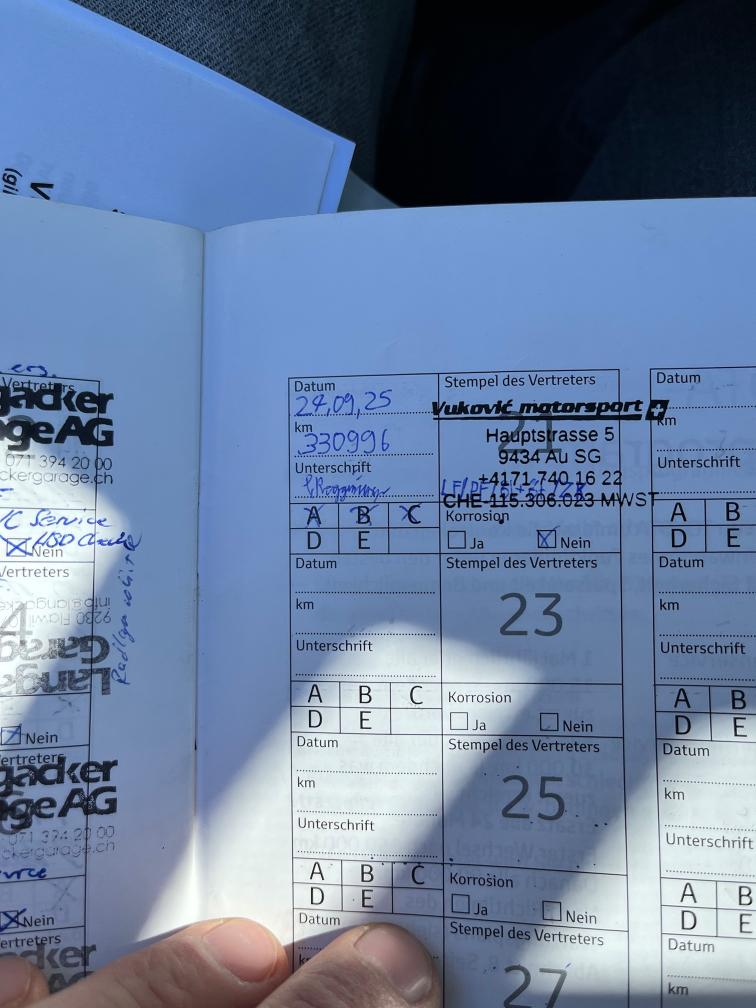 V
(gil
ers.
Vertreters
gacker
geAG
071 394 20 00
ckergarage.ch
C Service
HSD Check
Nein
Vertreters
9230 Flawil
info@langac
Garag
Langa
Nein
ertreters
gacker
geAG
071 394 20 00
ckergarage.ch
Nein
ertreters
cker
Datum
24,09,25
km
330996
Unterschrift
A B C
D E
Stempel des Vertreters
21
Vuković motorsport
Hauptstrasse 5
9434 Au SG
+4171 740 16 22
CHE-115.306.023 MWST
Korrosion
Ja Nein
Datum
km
Unterschrift
A B
D E
Datum
km
Unterschrift
A B C
D E
Stempel des Vertreters
23
Korrosion
Ja Nein
Datum
km
Unterschrift
A B
D E
Datum
km
Unterschrift
A B C
D E
Stempel des Vertreters
25
Korrosion
Ja Nein
Datum
km
Unterschrift
A B
D E
Datum
Stempel des Vertreters
27
Datum
km